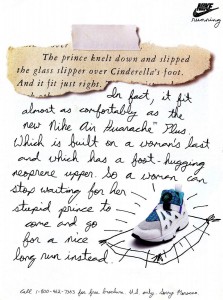 NIKE
running
The prince knelt down and slipped
the glass slipper over Cinderella's foot.
And it fit just right.
In fact, it fit
almost as comfortably as the
new Nike Air Huarache Plus.
Which is built on a woman's last
and which has a foot-hugging
neoprene upper. So a woman can
stop waiting for her
stupid prince to
come and go
for a nice
long run instead.
Call 1-800-462-7363 for free brochure. U.S. only.